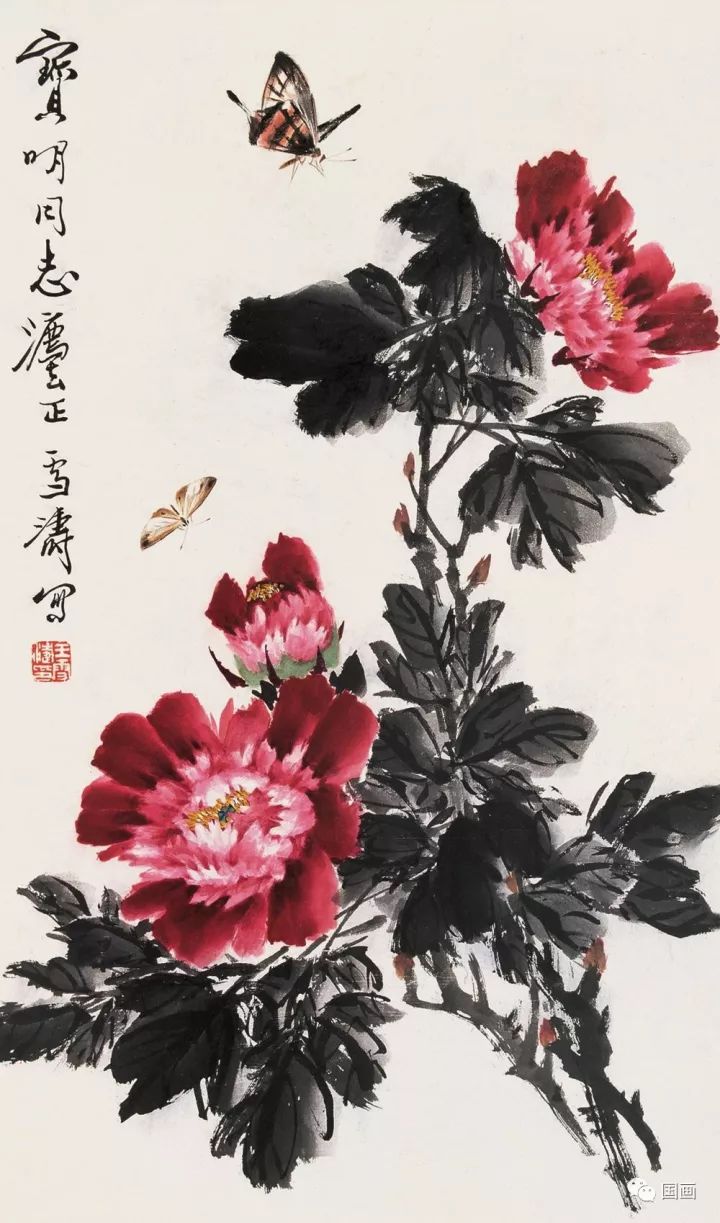 寶明同志灋正 雪濤写
王雪濤印
国画